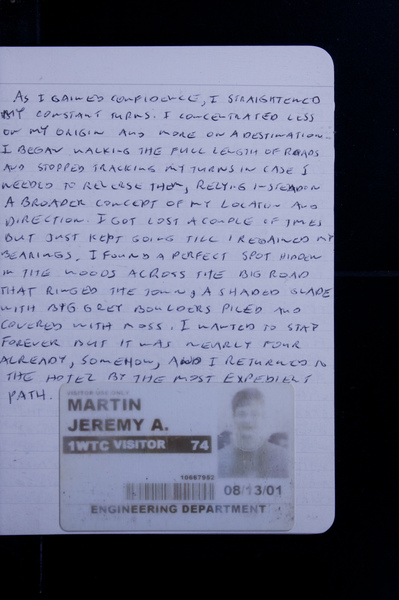 AS I GAINED CONFIDENCE, I STRAIGHTENED
MY CONSTANT TURNS. I CONCENTRATED LESS
ON MY ORIGIN AND MORE ON A DESTINATION.
I BEGAN WALKING THE FULL LENGTH OF ROADS
AND STOPPED TRACKING MY TURNS IN CASE I
NEEDED TO REVERSE THEM, RELYING INSTEAD ON
A BROADER CONCEPT OF MY LOCATION AND
DIRECTION. I GOT LOST A COUPLE OF TIMES
BUT JUST KEPT GOING TILL I REGAINED MY
BEARINGS. I FOUND A PERFECT SPOT HIDDEN
IN THE WOODS ACROSS THE BIG ROAD
THAT RINGED THE TOWN, A SHADED GLADE
WITH BIG GREY BOULDERS PILED AND
COVERED WITH MOSS. I WANTED TO STAY
FOREVER BUT IT WAS NEARLY FOUR
ALREADY, SOMEHOW, AND I RETURNED TO
THE HOTEL BY THE MOST EXPEDIENT
PATH.
MARTIN
JEREMY A.
1WTC VISITOR 74
08/13/01
ENGINEERING DEPARTMENT